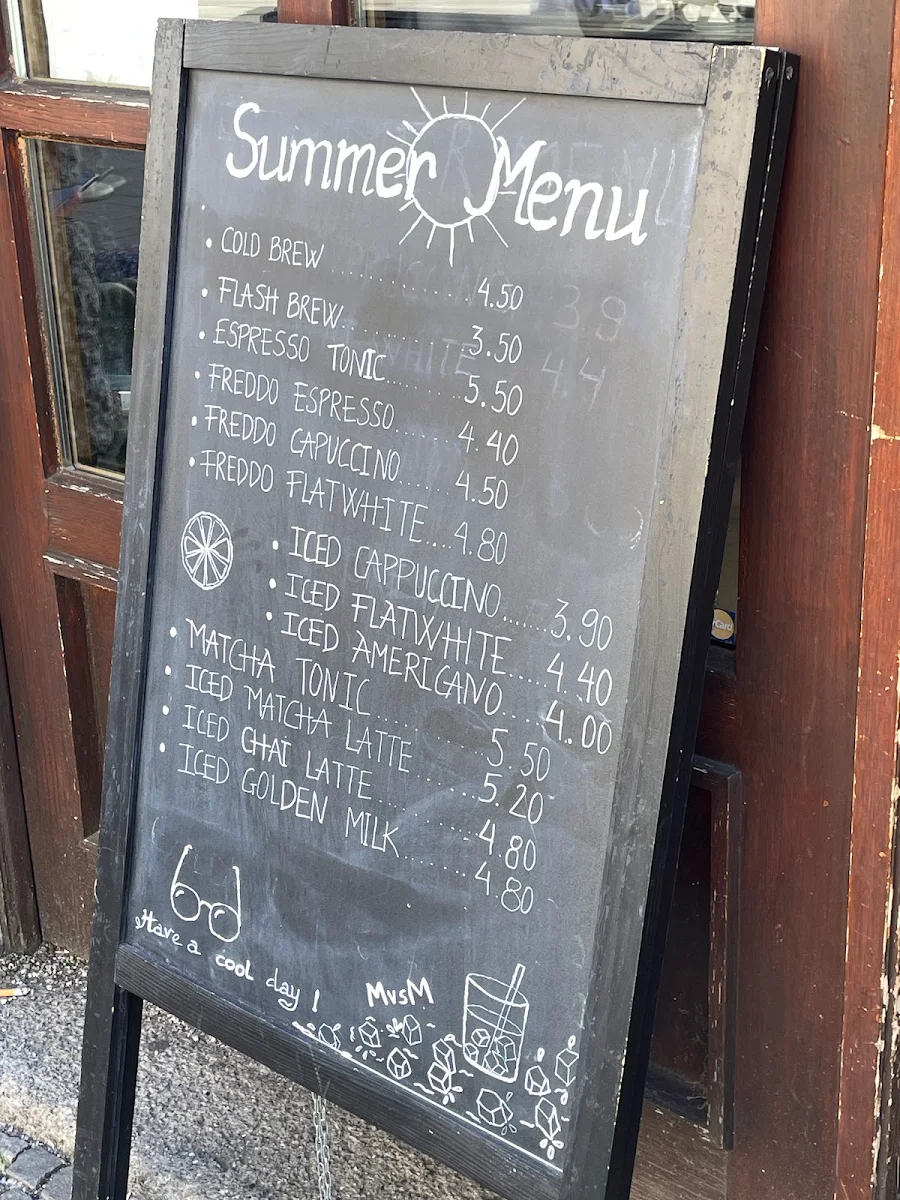 Summer Menu
• COLD BREW .......... 4.50
• FLASH BREW .......... 3.50
• ESPRESSO TONIC .......... 5.50
• FREDDO ESPRESSO ....... 4.40
• FREDDO CAPUCCINO ...... 4.50
• FREDDO FLATWHITE .... 4.80
• ICED CAPPUCCINO ....... 3.90
• ICED FLATWHITE .... 4.40
• ICED AMERICANO .... 4.00
• MATCHA TONIC .......... 5.50
• ICED MATCHA LATTE ....... 5.20
• ICED CHAI LATTE .......... 4.80
• ICED GOLDEN MILK ......... 4.80
Have a cool day!
MvsM